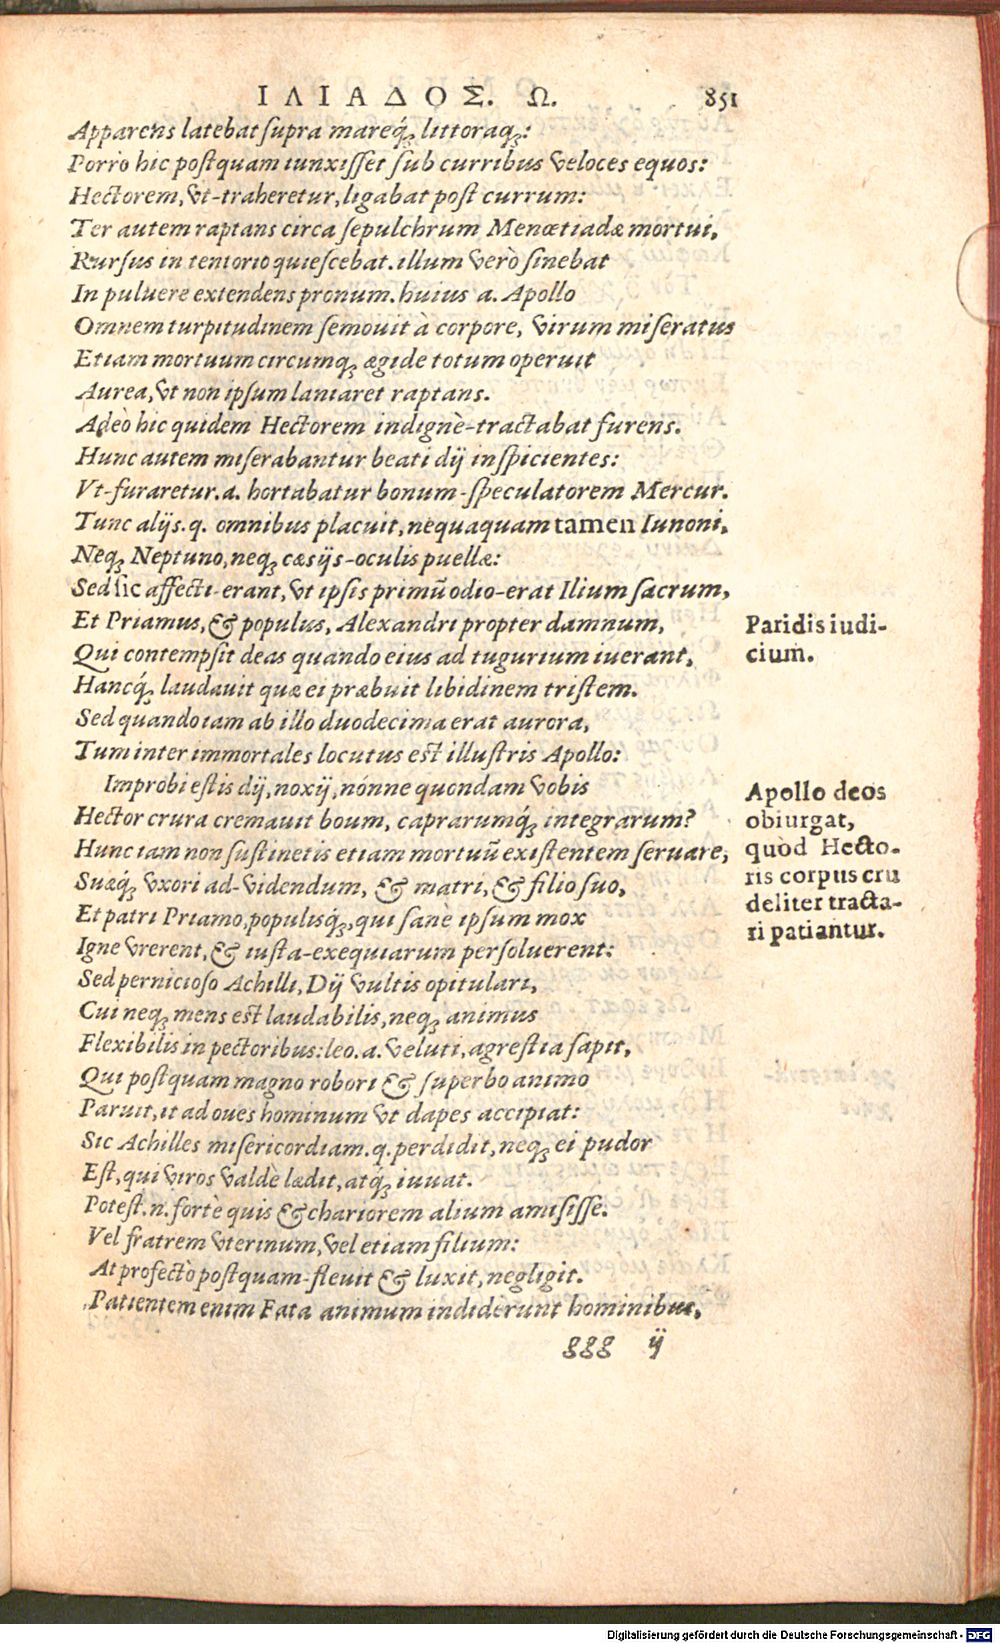 ΙΛΙΑΔΟΣ. Ω. 851
Apparens latebat supra mareq́; littoraq́;:
Porrò hic postquam iunxisset sub curribus veloces equos:
Hectorem, vt-traheretur, ligabat post currum:
Ter autem raptans circa sepulchrum Menœtiadæ mortui,
Rursus in tentorio quiescebat. illum verò sinebat
In puluere extendens pronum. huius a. Apollo
Omnem turpitudinem semouit à corpore, virum miseratus
Etiam mortuum circumq; ægide totum operuit
Aurea, vt non ipsum laniaret raptans.
Adeò hic quidem Hectorem indignè-tractabat furens.
Hunc autem miserabantur beati dij inspicientes:
Vt-furaretur. a. hortabatur bonum-speculatorem Mercur.
Tunc alijs. q. omnibus placuit, nequaquam tamen Iunoni,
Neq; Neptuno, neq; cæsijs-oculis puellæ:
Sed sic affecti-erant, vt ipsis primū odio-erat Ilium sacrum,
Et Priamus, & populus, Alexandri propter damnum,
Qui contempsit deas quando eius ad tugurium iuerant,
Hancq́; laudauit quæ ei præbuit libidinem tristem.
Sed quando iam ab illo duodecima erat aurora,
Tum inter immortales locutus est illustris Apollo:
Improbi estis dij, noxij, nónne quondam vobis
Hector crura cremauit boum, caprarumq́; integrarum?
Hunc iam non sustinetis etiam mortuū existentem seruare,
Suæq́; vxori ad-videndum, & matri, & filio suo,
Et patri Priamo, populisq́;, qui sanè ipsum mox
Igne vrerent, & iusta-exequiarum persoluerent:
Sed pernicioso Achilli, Dij vultis opitulari,
Cui neq; mens est laudabilis, neq; animus
Flexibilis in pectoribus: leo. a. veluti, agrestia sapit,
Qui postquam magno robori & superbo animo
Paruit, it ad oues hominum vt dapes accipiat:
Sic Achilles misericordiam. q. perdidit, neq; ei pudor
Est, qui viros valdè lædit, atq́; iuuat.
Potest. n. fortè quis & chariorem alium amisisse.
Vel fratrem vterinum, vel etiam filium:
At profectò postquam-fleuit & luxit, negligit.
Patientem enim Fata animum indiderunt hominibus,
ggg ij
Paridis iudi-
cium.
Apollo deos
obiurgat,
quòd Hecto-
ris corpus cru
deliter tracta-
ri patiantur.
Digitalisierung gefördert durch die Deutsche Forschungsgemeinschaft - DFG